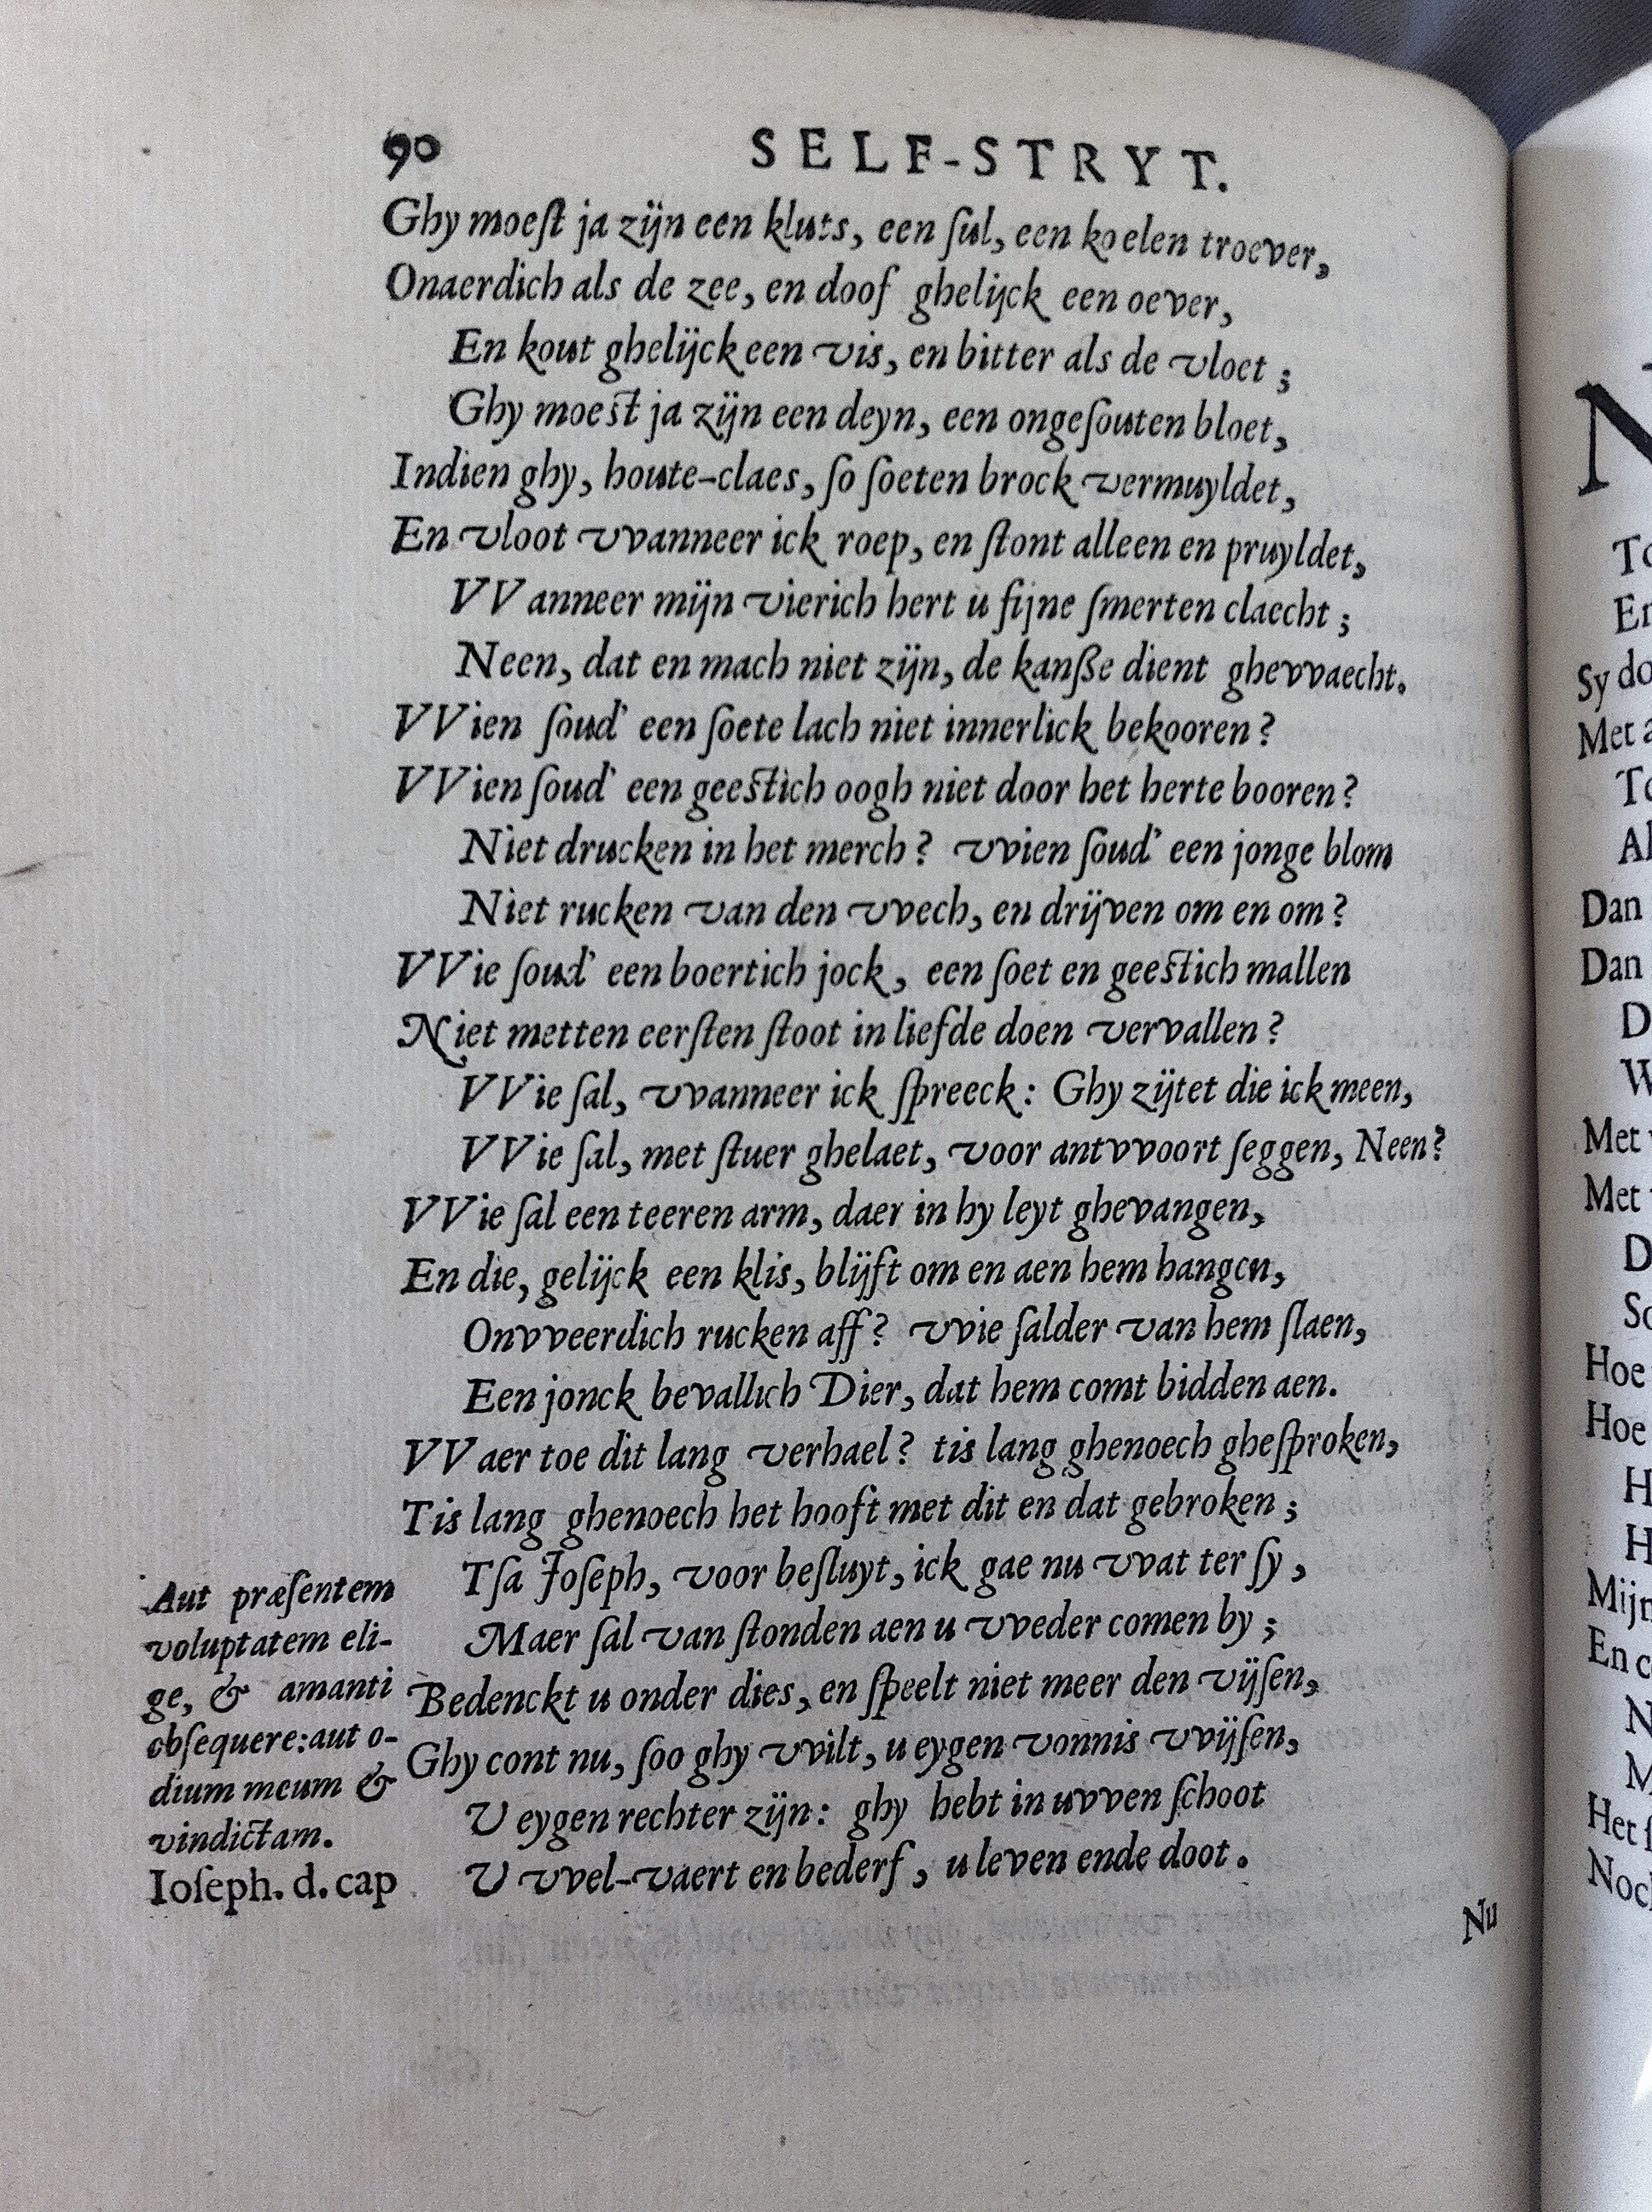 90 SELF-STRYT.
Ghy moeſt ja zijn een kluts, een ſul, een koelen troever,
Onaerdich als de zee, en doof ghelijck een oever,
En kout ghelijck een vis, en bitter als de vloet ;
Ghy moest ja zijn een deyn, een ongeſouten bloet,
Indien ghy, houte-claes, ſo ſoeten brock vermuyldet,
En vloot vvanneer ick roep, en ſtont alleen en pruyldet,
VVanneer mijn vierich hert u ſijne ſmerten claecht ;
Neen, dat en mach niet zijn, de kanße dient ghevvaecht.
VVien ſoud' een ſoete lach niet innerlick bekooren ?
VVien ſoud' een geestich oogh niet door het herte booren ?
Niet drucken in het merch ? vvien ſoud' een jonge blom
Niet rucken van den vvech, en drijven om en om ?
VVie ſoud' een boertich jock, een ſoet en geestich mallen
Niet metten eerſten ſtoot in liefde doen vervallen ?
VVie ſal, vvanneer ick ſpreeck : Ghy zijtet die ick meen,
VVie ſal, met ſtuer ghelaet, voor antvvoort ſeggen, Neen ?
VVie ſal een teeren arm, daer in hy leyt ghevangen,
En die, gelijck een klis, blijft om en aen hem hangen,
Onvveerdich rucken aff ? vvie ſalder van hem ſlaen,
Een jonck bevallich Dier, dat hem comt bidden aen.
VVaer toe dit lang verhael ? tis lang ghenoech gheſproken,
Tis lang ghenoech het hooft met dit en dat gebroken ;
Tſa Joſeph, voor beſluyt, ick gae nu vvat ter ſy ,
Maer ſal van ſtonden aen u vveder comen by ;
Bedenckt u onder dies, en ſpeelt niet meer den vijſen,
Ghy cont nu, ſoo ghy vvilt, u eygen vonnis vvijſen,
V eygen rechter zijn : ghy hebt in uvven ſchoot
V vvel-vaert en bederf, u leven ende doot.
Aut præſentem
voluptatem eli-
ge, & amanti
obſequere: aut o-
dium meum &
vindictam.
Ioſeph. d. cap
Nu
N
To
En
Sy do
Met a
To
Al
Dan
Dan
D
W
Met
Met
D
So
Hoe
Hoe
H
H
Mijn
En c
N
M
Het ſ
Noch